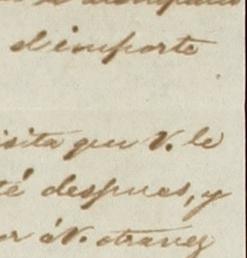 el importe
isita que V. le
té despues, y
or á V. otra vez